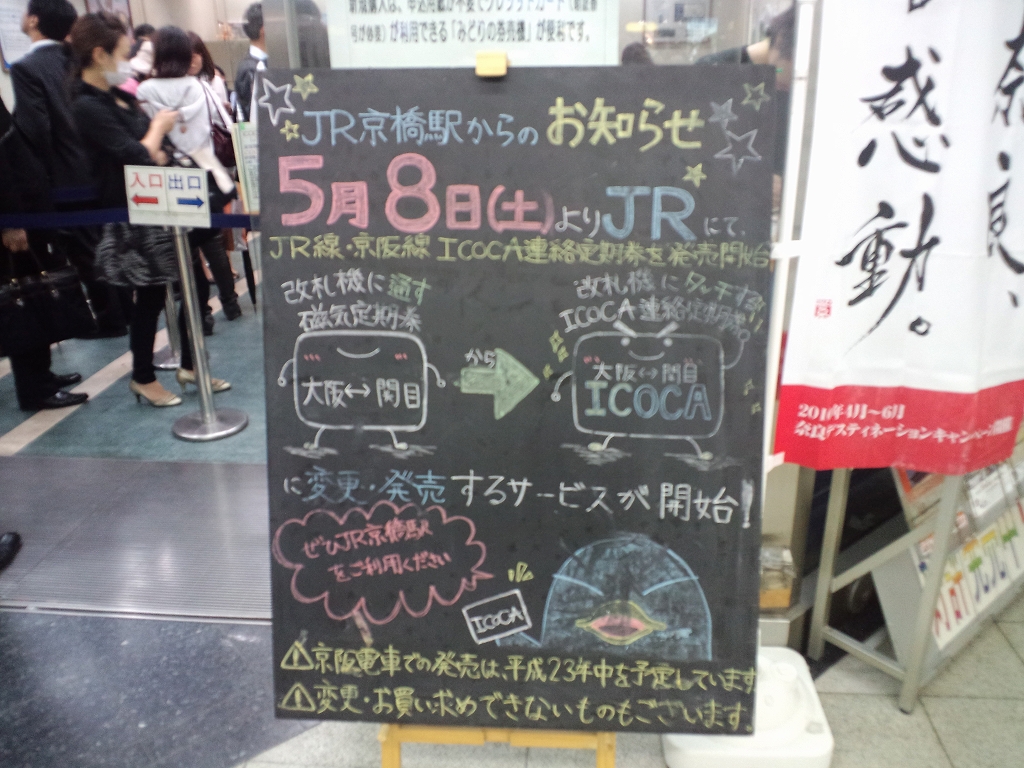 新規購入は、申込用紙が不要でクレジットカード(暗証番号が必要)が利用できる「みどりの券売機」が便利です。
JR京橋駅からの お知らせ
5月8日(土)よりJRにて、
JR線・京阪線 ICOCA連絡定期券を発売開始
改札機に通す
磁気定期券
大阪↔関目
から
改札機にタッチする!!
ICOCA連絡定期券
大阪↔関目
ICOCA
に変更・発売するサービスが開始!
ぜひJR京橋駅
をご利用ください
ICOCA
⚠京阪電車での発売は、平成23年中を予定しています
⚠変更・お買い求めできないものもございます
入口
出口
奈良、
感動。
2010年4月〜6月
奈良デスティネーションキャンペーン開催